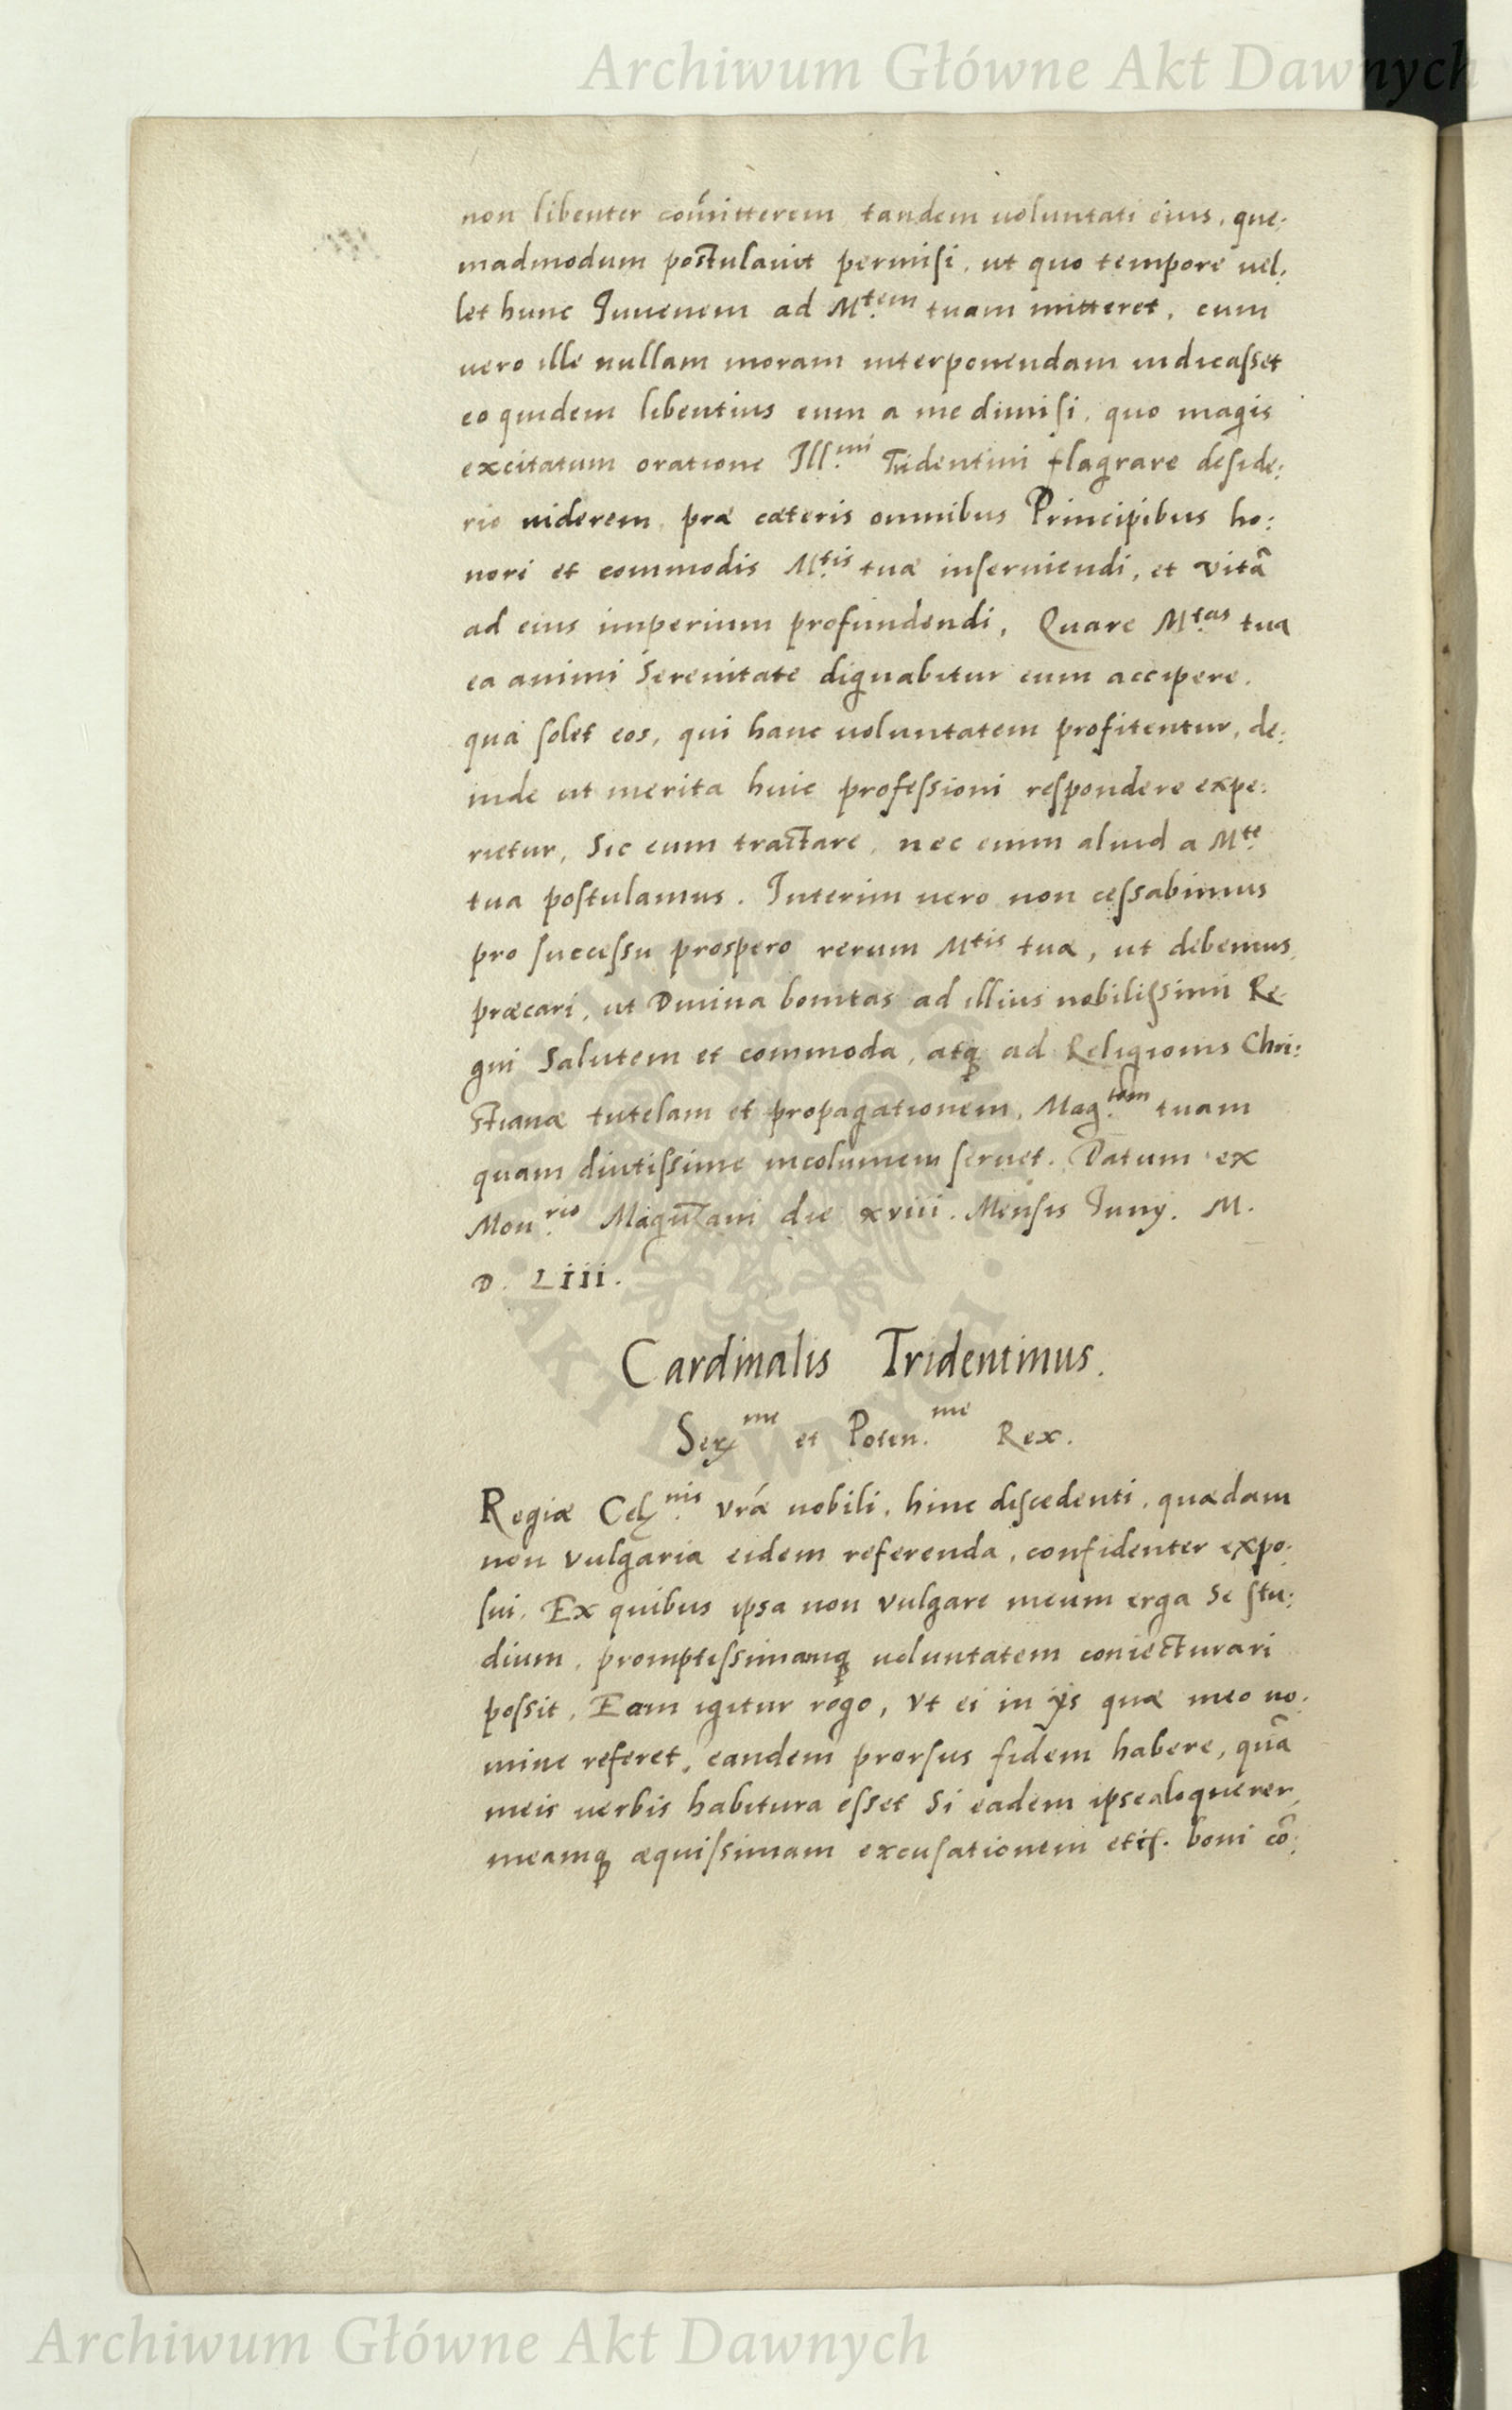 Archiwum Główne Akt Dawnych
non libenter com̄itterem tandem uoluntati eius, que:
madmodum postulauit permisi, ut quo tempore uel:
let hunc Juuenem ad M.tem tuam mitteret, cum
uero ille nullam moram interponendam iudicasset
eo quidem libentius eum a me dimisi, quo magis
excitatum oratione Ill.mi Tridentini flagrare deside:
rio uiderem, præ cæteris omnibus Principibus ho:
nori et commodis M.tis tuæ inseruiendi, et vitā
ad eius imperium profundendi, Quare M.tas tua
ea animi Serenitate dignabitur eum accipere,
qua solet eos, qui hanc uoluntatem profitentur, de:
inde ut merita huic professioni respondere expe:
rietur, Sic eum tractare, nec enim aliud a M.te
tua postulamus. Interim uero non cessabimus
pro successu prospero rerum Mtis tuæ, ut debemus,
præcari, ut Diuina bonitas ad illius nobilissimi Re
gni Salutem et commoda, atq ad Religionis Chri:
stianæ tutelam et propagationem, Mag.tem tuam
quam diutissime incolumem seruet. Datum ex
Mon.rio Maguzani die xviii. Mensis Junij. M.
D. Liii.
Cardinalis Tridentinus.
Ser.me et Poten.me Rex.
Regiæ Cel.nis vræ nobili, hinc discedenti, quædam
non vulgaria eidem referenda, confidenter expo:
sui, Ex quibus ipsa non vulgare meum erga Se stu:
dium, promptissimamq uoluntatem coniecturari
possit, Eam igitur rogo, Vt ei in ijs quæ meo no:
mine referet, eandem prorsus fidem habere, quā
meis uerbis habitura esset Si eadem ipse aloquerer,
meamq æquissimam excusationem boni cō:
Archiwum Główne Akt Dawnych